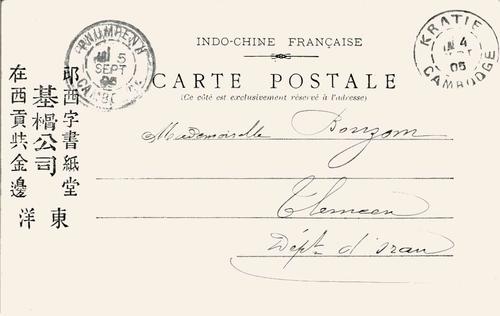 INDO-CHINE FRANÇAISE
CARTE POSTALE
(Ce côté est exclusivement réservé à l'adresse)
PNUMPENH
5
SEPT
05
CAMBODGE
KRATIE
4
SEPT
05
CAMBODGE
Mademoiselle Bouzom
Tlemcen
Dépt d'oran
耶西字書紙堂
基榾公司
在西貢柴金邊
東洋